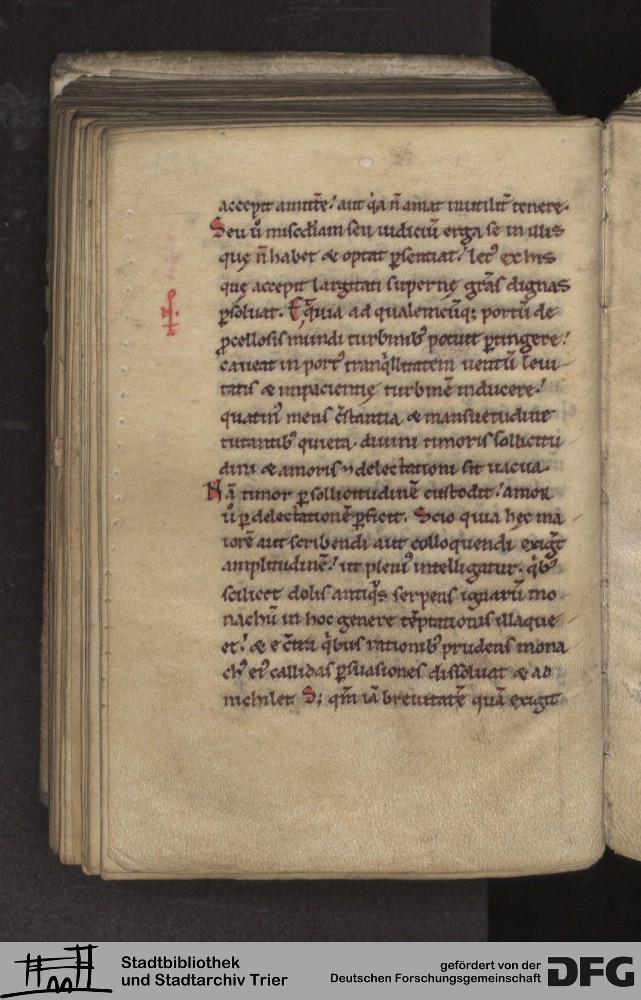 accepit amitte᷒! aut q̇a n̄ amat inutilit̄ tenere.
Seu ů misc̄diam seu iudiciū erga se in illis
quę n̄ habet & optat p̱sentiat! let᷒ ex his
quę accepit largitati supernę gr̄as dignas
p̱soluat. Et q̇uia ad qualemcūq; portū de
p̱cellosis mundi turbinib᷒ potuit p̱tingere!
caueat in port᷒ tranq̇llitatem uentū leui
tatis & impacientię turbinē inducere!
quatin᷒ mens c̄stantia & mansuetudine
tutantib᷒ quieta. diuini timoris sollicitu
dini & amoris delectationi sit uacua.
Nā timor p̱ sollicitudinē custodit! amor
ů p̱ delectationē p̱ficit. Scio quia hec ma
iorē aut scribendi aut colloquendi exiḡt
amplitudinē! ut pleni᷒ intelligatur. q̇b᷒
scilicet dolis antiq᷒s serpens ignarū mo
nachū in hoc genere tēptationis illaque
et! & e c̄tra q̇bus rationib᷒ prudens mona
ch᷒ ei᷒ callidas p̱suasiones dissoluat & ad
nichilet S; qm̄ iā breuitatē quā exigit
Stadtbibliothek
und Stadtarchiv Trier
gefördert von der
Deutschen Forschungsgemeinschaft
DFG